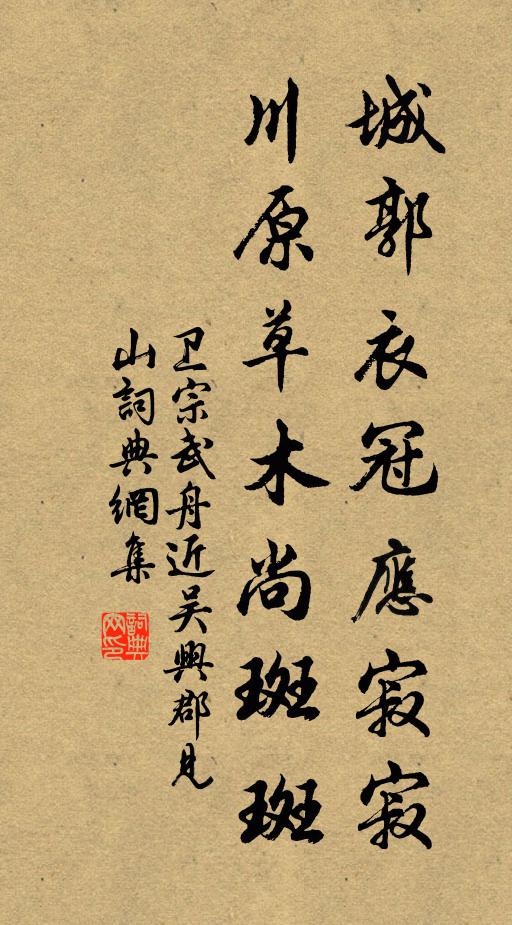 城郭衣冠應寂寂
川原草木尚斑斑
卫宗武舟近吴興郡見
山詞典網集
詞典網印